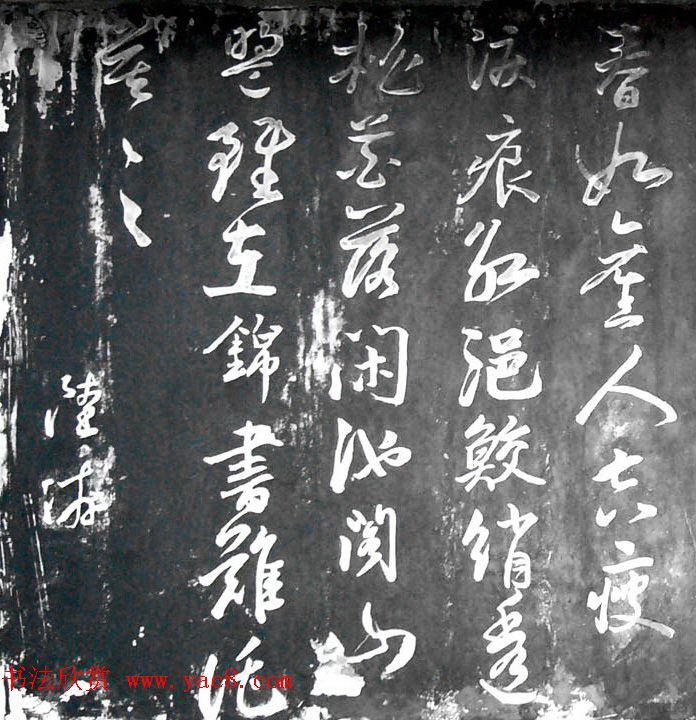 春如舊人空瘦
淚痕紅浥鮫綃透
桃花落閑池閣山
盟雖在錦書難托
莫々々
陸游
书法欣赏 www.yac8.com